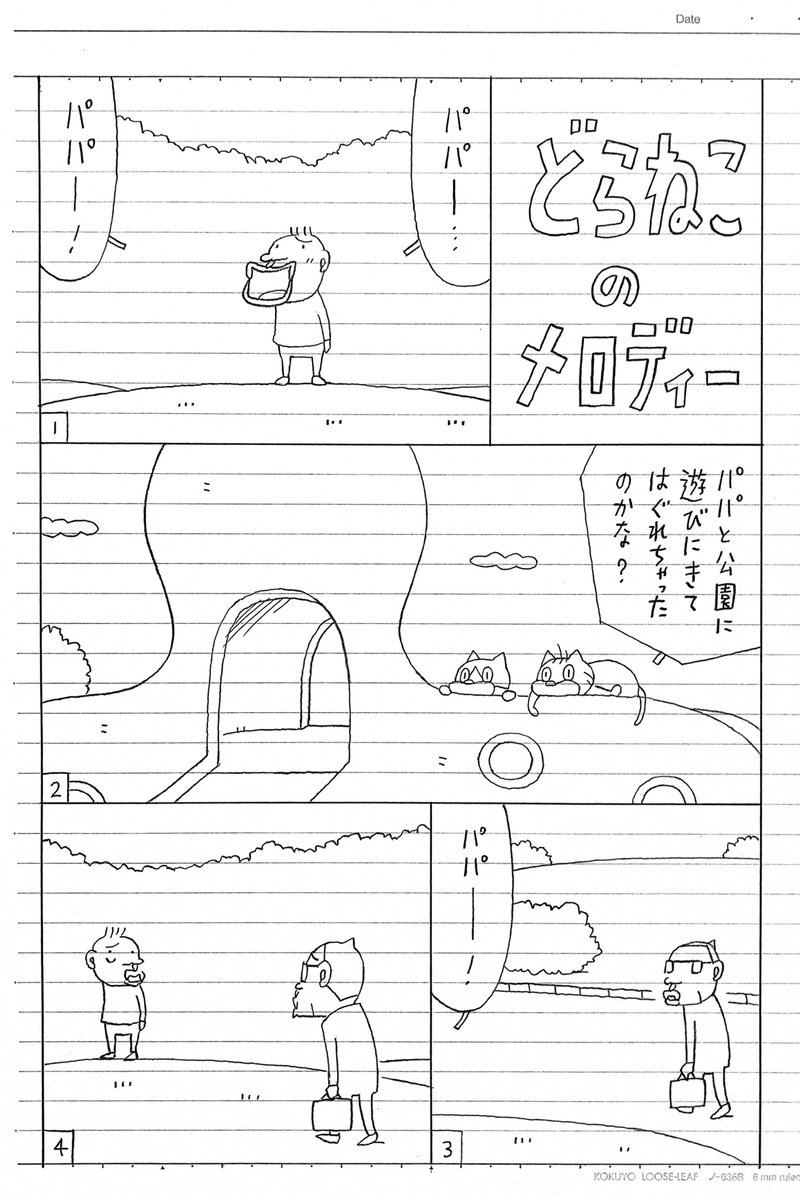 Date
どらねこ
の
メロディー
パパー…
パパー…
1
パパと公園に
遊びにきて
はぐれちゃった
のかな？
2
パパー…
3
4
KOKUYO LOOSE-LEAF ノ-836B 6 mm ruled